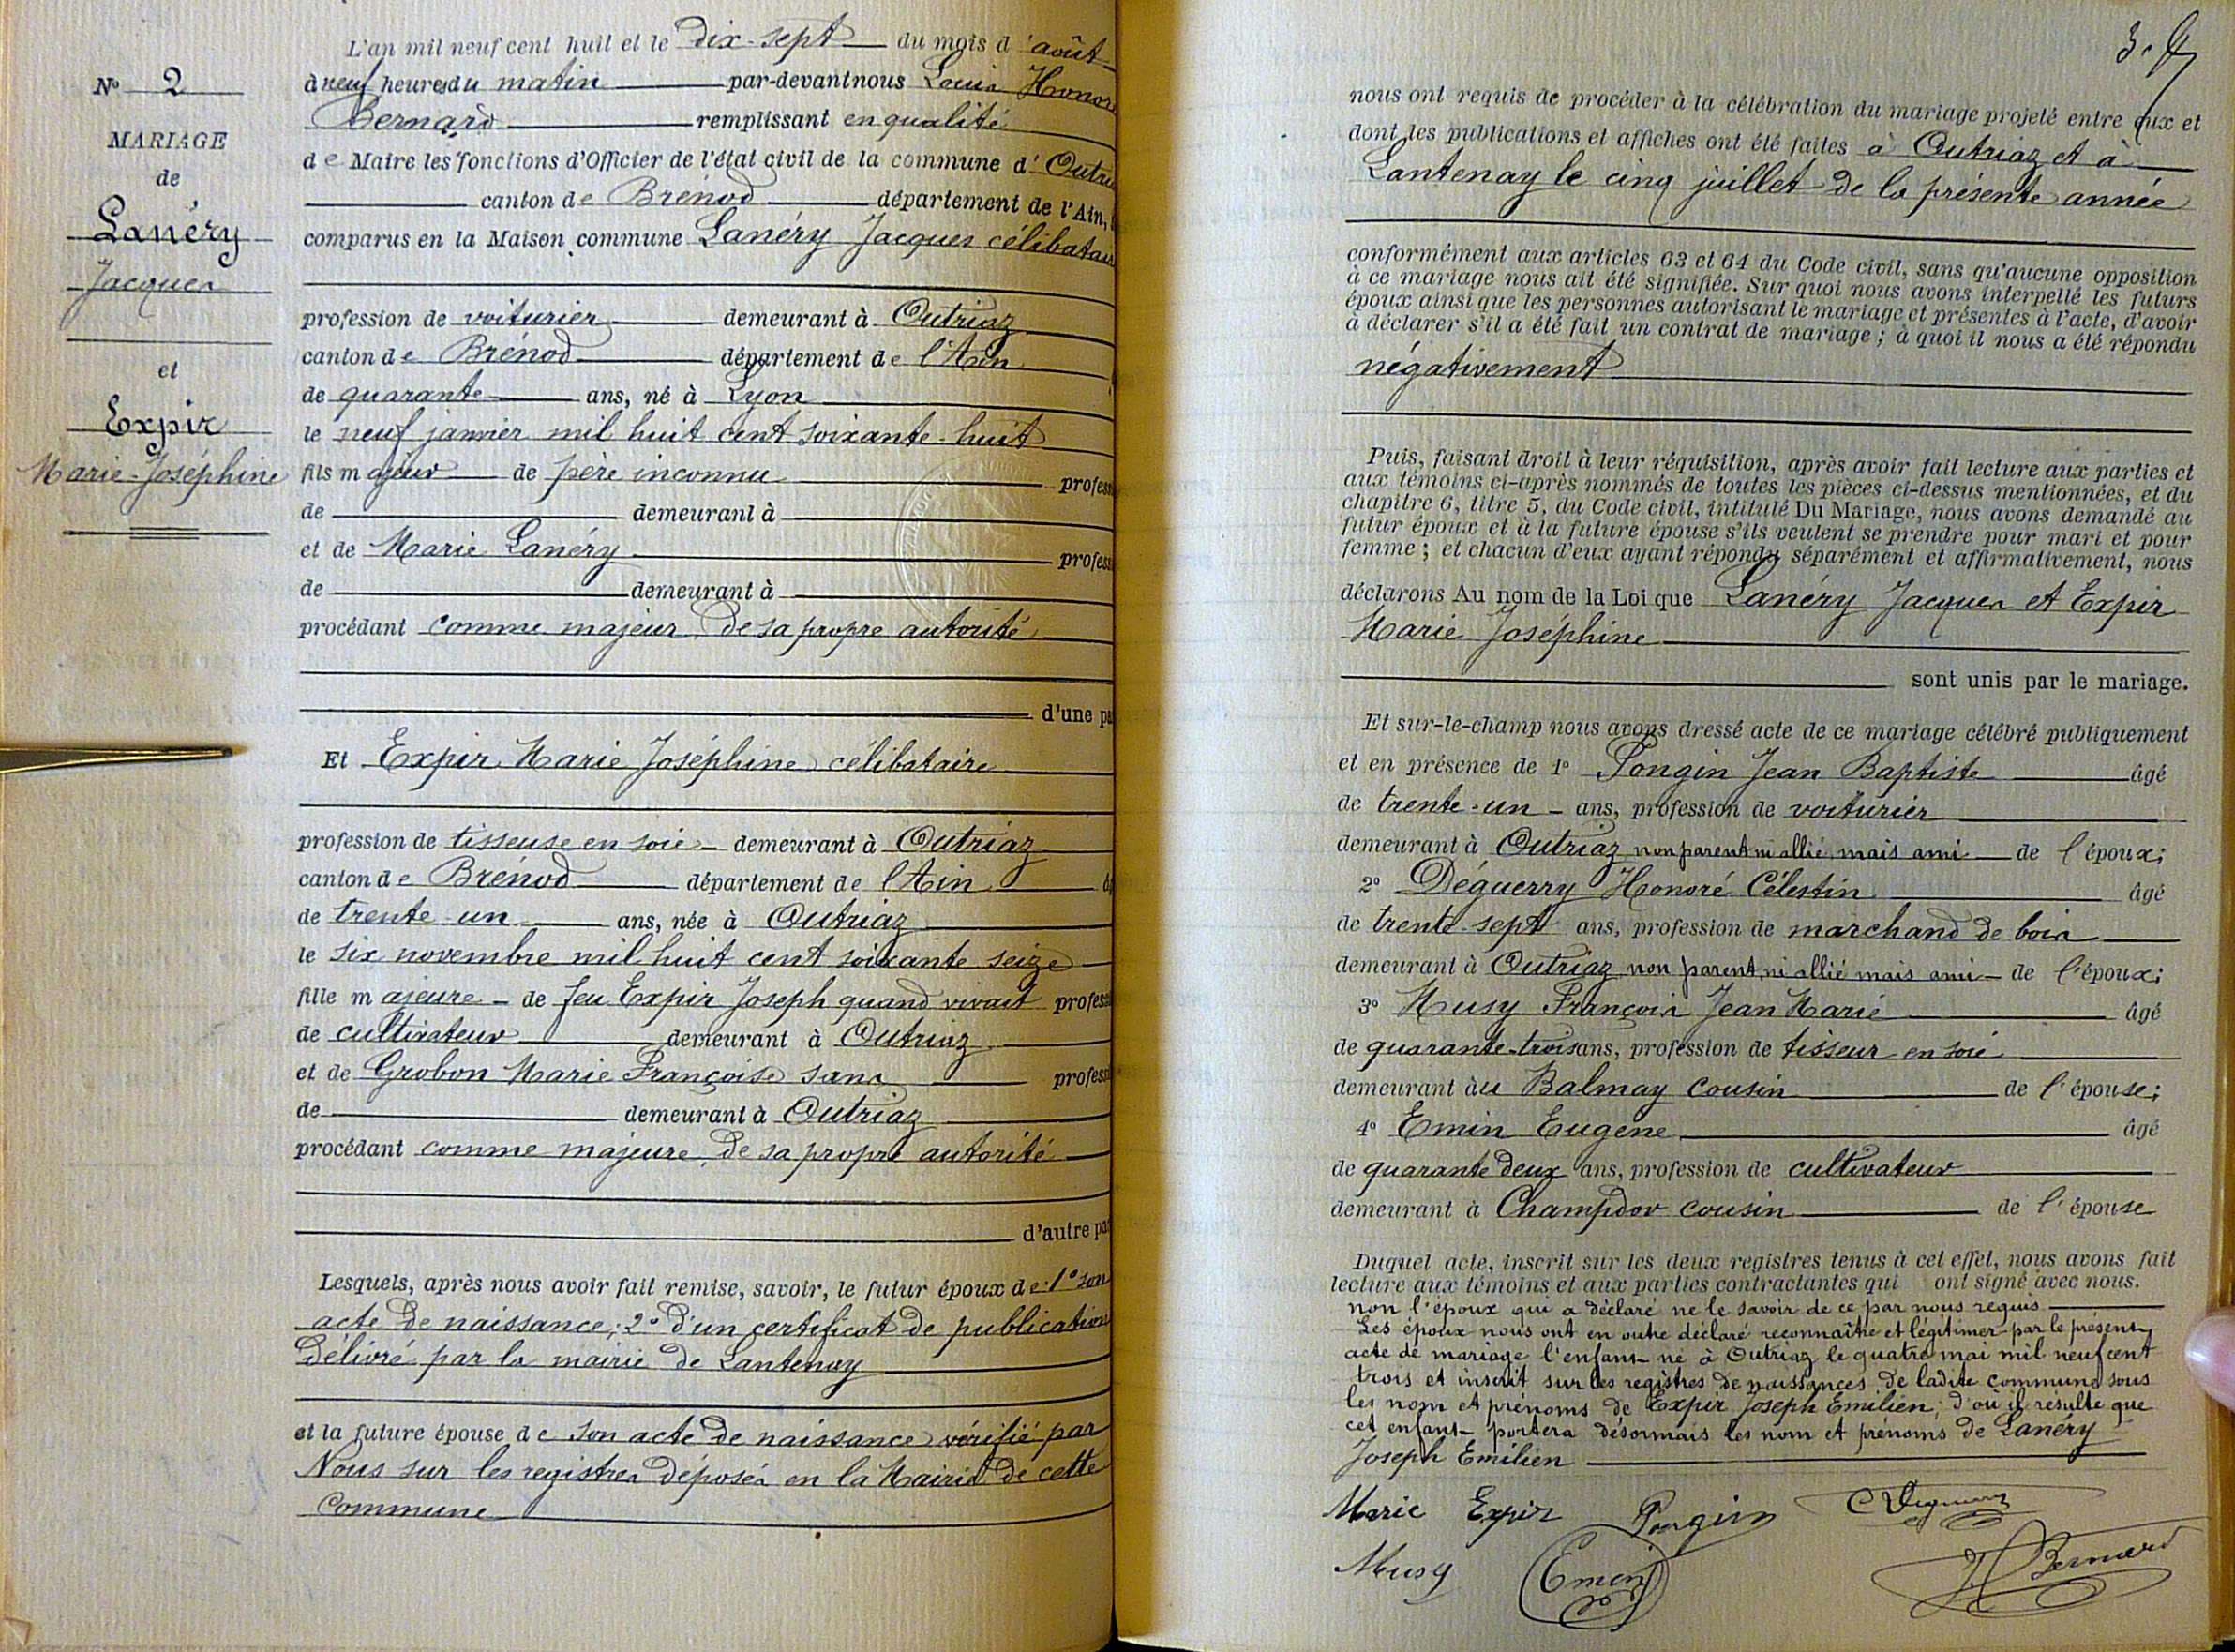 L'an mil neuf cent huit et le dix-sept du mois d'août
à neuf heures du matin par-devant nous Louis Honoré
Bernard remplissant en qualité
de Maire les fonctions d'Officier de l'état civil de la commune d'Outri
canton de Brénod département de l'Ain,
comparus en la Maison commune Lanéry Jacques célibatair
profession de voiturier demeurant à Outriaz
canton de Brénod département de l'Ain
de quarante ans, né à Lyon
le neuf janvier mil huit cent soixante-huit
fils majeur de père inconnu profess
de demeurant à
et de Marie Lanéry profess
de demeurant à
procédant comme majeur, de sa propre autorité
d'une pa
Et Expir Marie Joséphine célibataire
profession de tisseuse en soie demeurant à Outriaz
canton de Brénod département de l'Ain
de trente-un ans, née à Outriaz
le six novembre mil huit cent soixante seize
fille majeure de feu Expir Joseph quand vivait profess
de cultivateur demeurant à Outriaz
et de Grobon Marie Françoise sans profess
de demeurant à Outriaz
procédant comme majeure, de sa propre autorité
d'autre pa
Lesquels, après nous avoir fait remise, savoir, le futur époux de: 1° son
acte de naissance; 2° d'un certificat de publication
délivré par la mairie de Lantenay
et la future épouse de son acte de naissance vérifié par
Nous sur les registres déposés en la Mairie de cette
commune
N° 2
MARIAGE
de
Lanéry
Jacques
et
Expir
Marie-Joséphine
nous ont requis de procéder à la célébration du mariage projeté entre eux et
dont les publications et affiches ont été faites à Outriaz et à
Lantenay le cinq juillet de la présente année
conformément aux articles 63 et 64 du Code civil, sans qu'aucune opposition
à ce mariage nous ait été signifiée. Sur quoi nous avons interpellé les futurs
époux ainsi que les personnes autorisant le mariage et présentes à l'acte, d'avoir
à déclarer s'il a été fait un contrat de mariage; à quoi il nous a été répondu
négativement
Puis, faisant droit à leur réquisition, après avoir fait lecture aux parties et
aux témoins ci-après nommés de toutes les pièces ci-dessus mentionnées, et du
chapitre 6, titre 5, du Code civil, intitulé Du Mariage, nous avons demandé au
futur époux et à la future épouse s'ils veulent se prendre pour mari et pour
femme; et chacun d'eux ayant répondu séparément et affirmativement, nous
déclarons Au nom de la Loi que Lanéry Jacques et Expir
Marie Joséphine
sont unis par le mariage.
Et sur-le-champ nous avons dressé acte de ce mariage célébré publiquement
et en présence de 1° Pongin Jean Baptiste âgé
de trente-un ans, profession de voiturier
demeurant à Outriaz non parent ni allié, mais ami de l'époux;
2° Déguerry Honoré Célestin âgé
de trente-sept ans, profession de marchand de bois
demeurant à Outriaz non parent, ni allié mais ami de l'époux;
3° Musy François Jean Marie âgé
de quarante-trois ans, profession de tisseur en soie
demeurant àu Balmay cousin de l'épouse;
4° Emin Eugène âgé
de quarante deux ans, profession de cultivateur
demeurant à Champdor cousin de l'épouse
Duquel acte, inscrit sur les deux registres tenus à cet effet, nous avons fait
lecture aux témoins et aux parties contractantes qui ont signé avec nous.
non l'époux qui a déclaré ne le savoir de ce par nous requis
Les époux nous ont en outre déclaré reconnaître et légitimer par le présent
acte de mariage l'enfant né à Outriaz le quatre mai mil neuf cent
trois et inscrit sur les registres de naissances de ladite commune sous
les nom et prénoms de Expir Joseph Emilien; d'où il résulte que
cet enfant portera désormais les nom et prénoms de Lanéry
Joseph Emilien
Marie Expir Pongin
Musy Emin Bernard